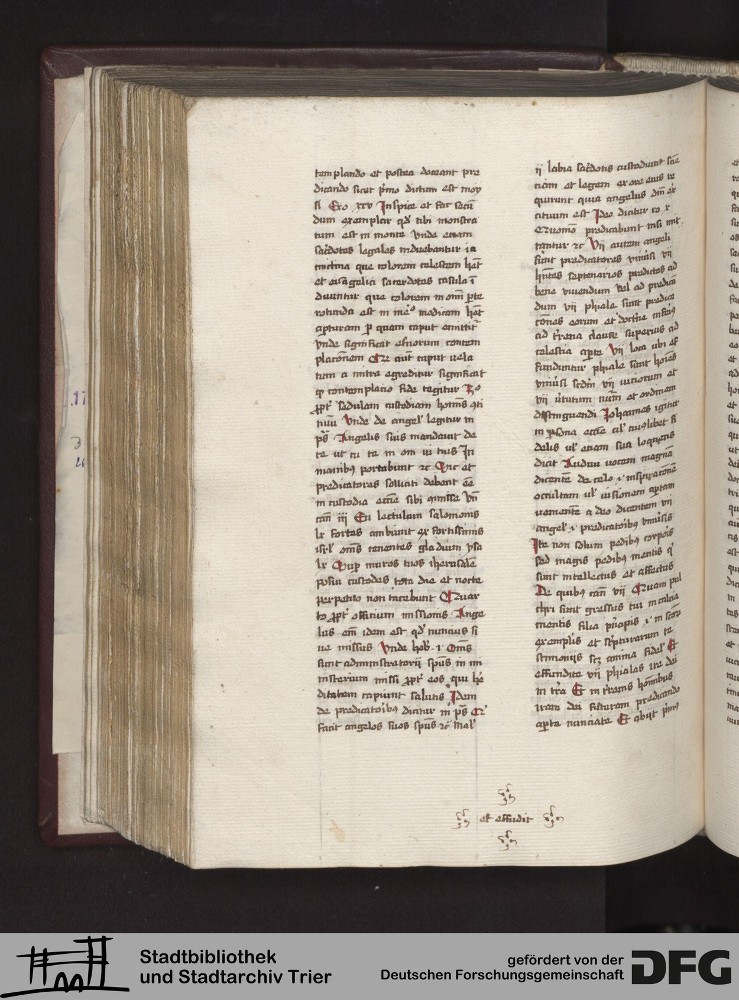 templando et postea doceant pre
dicando sicut pmo dictum est moy
si Exo xxv Inspice et fac secū
dum exemplar qd tibi monstra
tum est in monte Vnde etiam
sacdotes legales induebantur ia
cinctina que colorem celestem hēt
et euāgelici sacerdotes casula ī
duuntur que colorem in omī pte
rotunda est in medio modicam hēt
apturam p quam caput emittit
Vnde significat eorum contem
placōnem caput uela
tum a mitra egreditur significat
q contemplacio fide tegitur
ppt sedulam custodiam hominis
Vnde de angel legitur in
ps Angelis suis mandauit de
te ut cu te in om uiis tuis In
manibus portabunt zc Sic et
predicatores solliciti debent ēe
in custodia eccīe sibi cōmisse Vn
can iii En lectulum salomonis
lx fortes ambiunt ex fortissimis
isrl oms tenentes gladium ysa
lx Sup muros tuos iherusalem
posui custodes tota die et nocte
perpetuo non tacebunt Quar
to ppt officium missionis Ange
lus em idem est qd nuncius si
ue missus Vnde heb i Oms
sunt administratorii spūs in mi
nisterium missi ppt eos qui he
ditatem capiunt salutis Idem
de predicatoribus dicitur in ps Qi
facit angelos suos spūs zc mal
ii labia sacdotis custodiunt scie
ciam et legem ex ore eius re
quirunt quia angelus dni ex
cituum est Ideo dicitur ro x
Quomo predicabunt nisi mit
tantur zc Vii autem angeli
sunt predicatores vniuersi vii
hntes septenarios predictos ad
bene viuendum vel ad predicā
dum vii phiale sunt predica
cōnes eorum et doctne
ad trena clause superius ad
celestia apte Vii loca ubi ef
funduntur phiale sunt hoies
vniusi scdm vii uiciorum et
vii uirtutum num et ordinem
distinguendi Johannes igitur
in psona eccīe ul cuiuslibet fi
delis ul etiam sua loquens
dicit Audiui uocem magnā
dicentē de celo i inspiracōnē
occultam ul uisionem aptam
uementē a deo dicentem vii
angel i predicatoribus vniusis
Ite non solum pedibus corporis
sed magis pedibus mentis q
sunt intellectus et affectus
De quibus can vii Quam pul
chri sunt gressus tui in calcia
mentis filia pncipis i in scōrum
exemplis et scpturarum te
stimoniis scz anima fidel Et
effundite vii phialas ire dei
in tra Et in trenis hominibus
iram dei futuram predicando
apte nunciate Et abiit pmus
et effudit
Stadtbibliothek
und Stadtarchiv Trier
gefördert von der
Deutschen Forschungsgemeinschaft
DFG